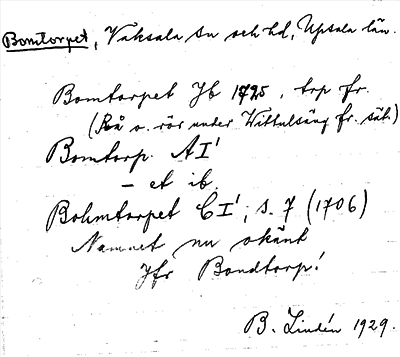 Bomtorpet, Vaksala sn och hd, Upsala län.
Bomtorpet Jb 1725, trp fr.
(Rå o. rör under Vittulsäng fr. sät.)
Bomtorp. A I'
— et ib.
Bohmtorpet C I', s. 7 (1706)
Namnet nu okänt
Jfr Bondtorp!
B. Lindén 1929.